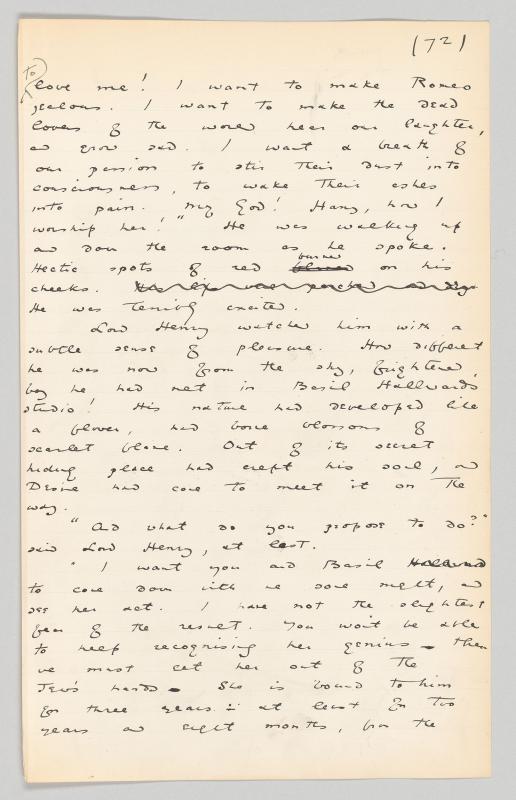 (72)
to
love me! I want to make Romeo
jealous. I want to make the dead
lovers of the world hear our laughter,
and grow sad. I want a breath of
our passion to stir their dust into
consciousness, to wake their ashes
into pain. My God! Harry, how I
worship her!" He was walking up
and down the room as he spoke.
burned
Hectic spots of red on his
cheeks. His lips were parched and
He was terribly excited.
Lord Henry watched him with a
subtle sense of pleasure. How different
he was now from the shy, frightened,
boy he had met in Basil Hallward's
studio! His nature had developed like
a flower, had borne blossoms of
scarlet flame. Out of its secret
hiding place had crept his soul, and
Desire had come to meet it on the
way.
"And what do you propose to do?"
said Lord Henry, at last.
"I want you and Basil Hallward
to come down with me some night, and
see her act. I have not the slightest
fear of the result. You won't be able
to help recognising her genius. Then
we must get her out of the
Jew's hands. She is bound to him
for three years: at least for two
years and eight months, from the